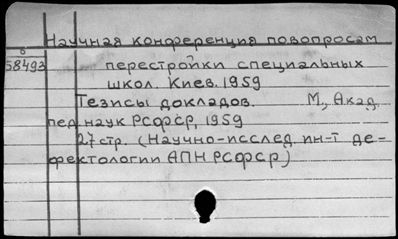 Научная конференция повопросам
б
58493
перестройки специальных
школ. Киев. 1959
Тезисы докладов. М., Акад.
пед наук РСФСР, 1959
27 стр. (Научно-исслед ин-т де-
фектологии АПН РСФСР)